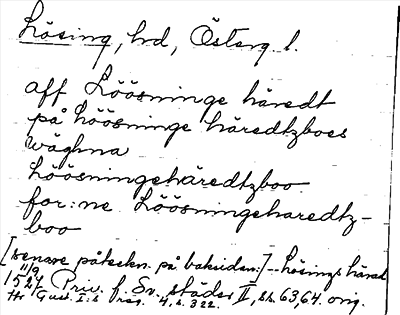 Lösing, hrd, Österg. l.
aff Löösninge häredt
på Löösninge häredtzboes
wäghna
Löösningehäredtzboo
for:ne Löösningeharedtz-
boo
[senare påteckn. på baksidan:] - Lösings härad
1527 11/9 Priv. f. Sv. städer II, s. 63, 64. orig.
Hr Gust. I:s reg. 4, s. 322.